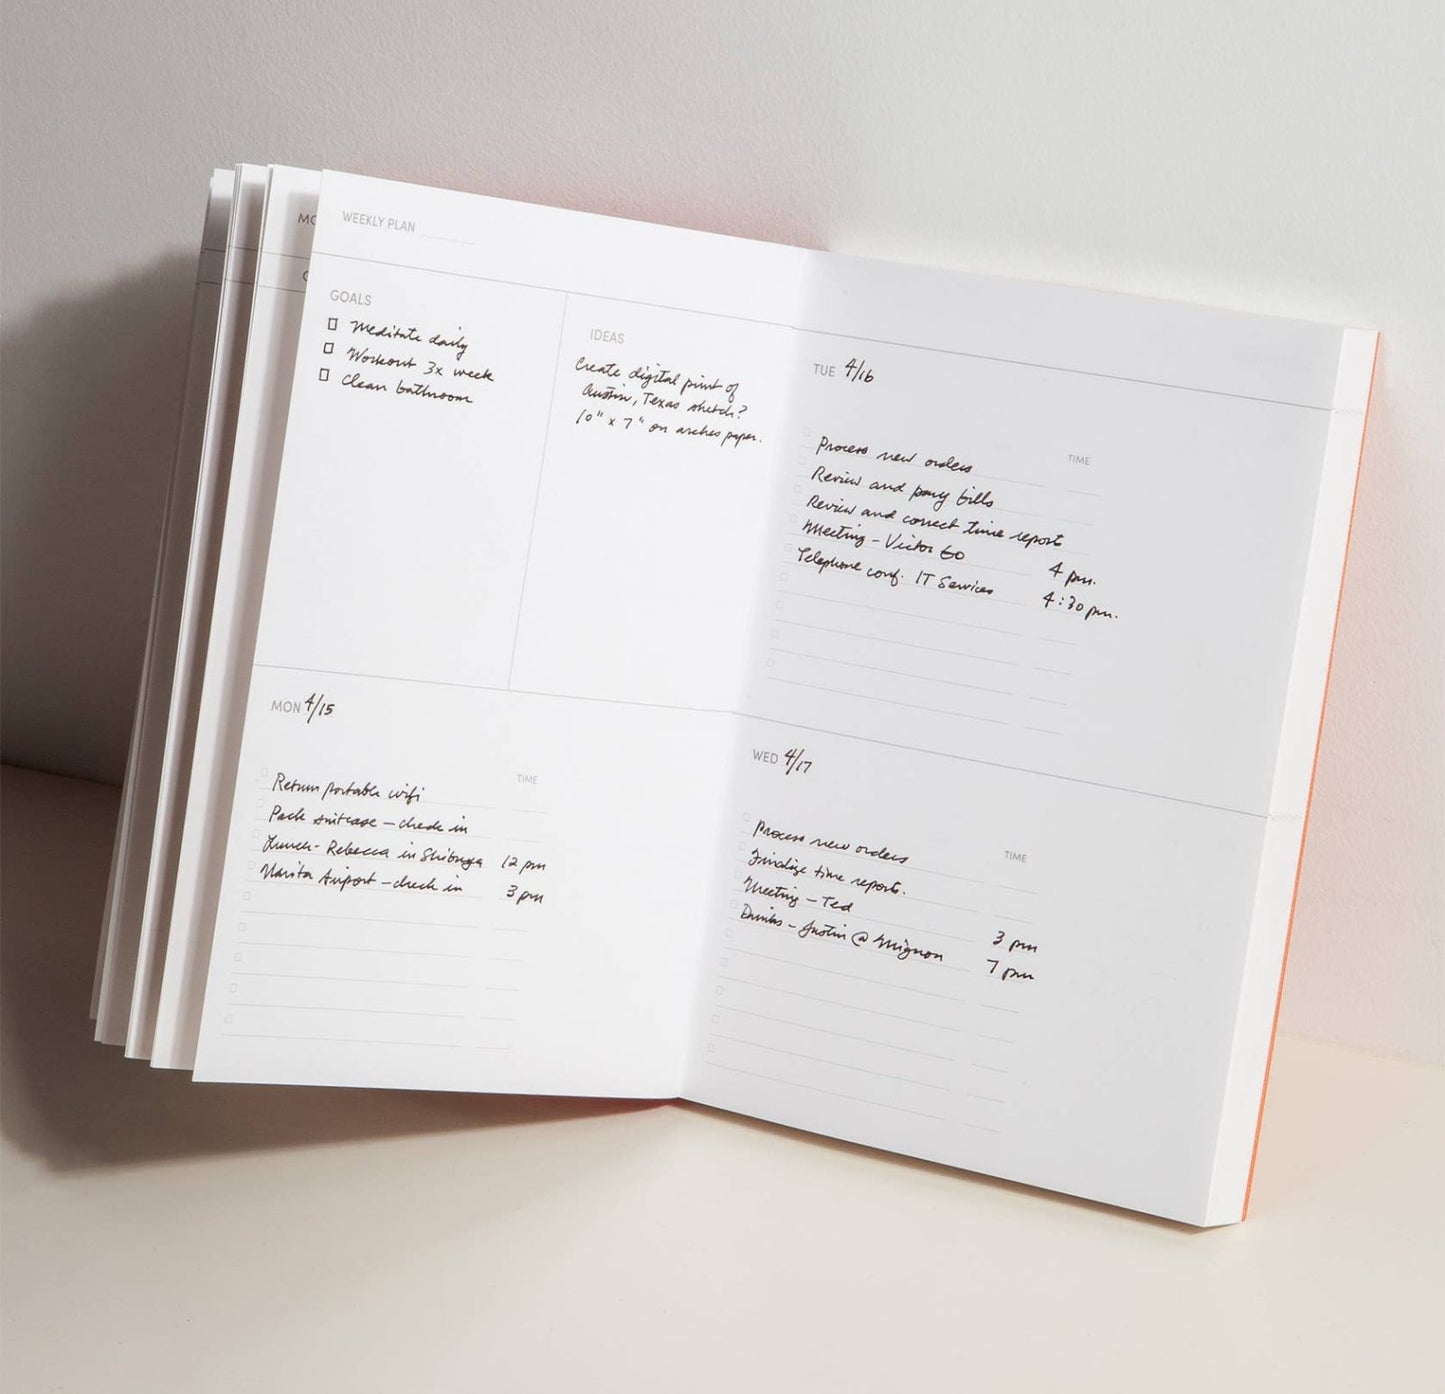 MO
WEEKLY PLAN
GOALS
Meditate daily
Workout 3x week
Clean bathroom
IDEAS
Create digital print of
Austin, Texas sketch?
10" x 7" on arches paper.
MON 4/15
TIME
Return portable wifi
Pack suitcase – check in
Lunch - Rebecca in Shibuya 12 pm
Narita Airport – check in 3 pm
TUE 4/16
TIME
Process new orders
Review and pay bills
Review and correct time report
Meeting – Victor 4 pm.
Telephone conf. IT Services 4:30 pm.
WED 4/17
TIME
Process new orders
Finalize time reports.
Meeting – Ted 3 pm
Drinks – Justin @ Mignon 7 pm